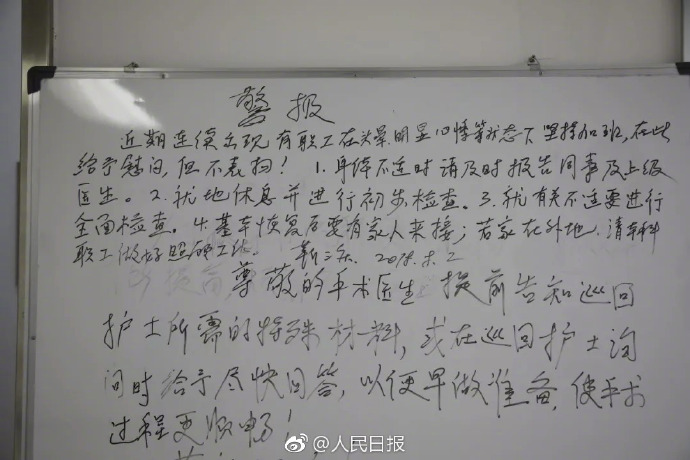 警报
近期连续出现有职工在头晕、明显心悸等状态下坚持加班,在此
给予慰问,但不表扬! 1.身体不适时请及时报告同事及上级
医生。2.就地休息并进行初步检查。3.就有关不适要进行
全面检查。4.基本恢复后要有家人来接;若家在外地,请本科
职工做好照顾工作。 2018.5.2
尊敬的手术医生 提前告知巡回
护士所需的特殊材料,或在巡回护士询
问时给予尽快回答,以便早做准备,使手术
过程更顺畅!
@人民日报